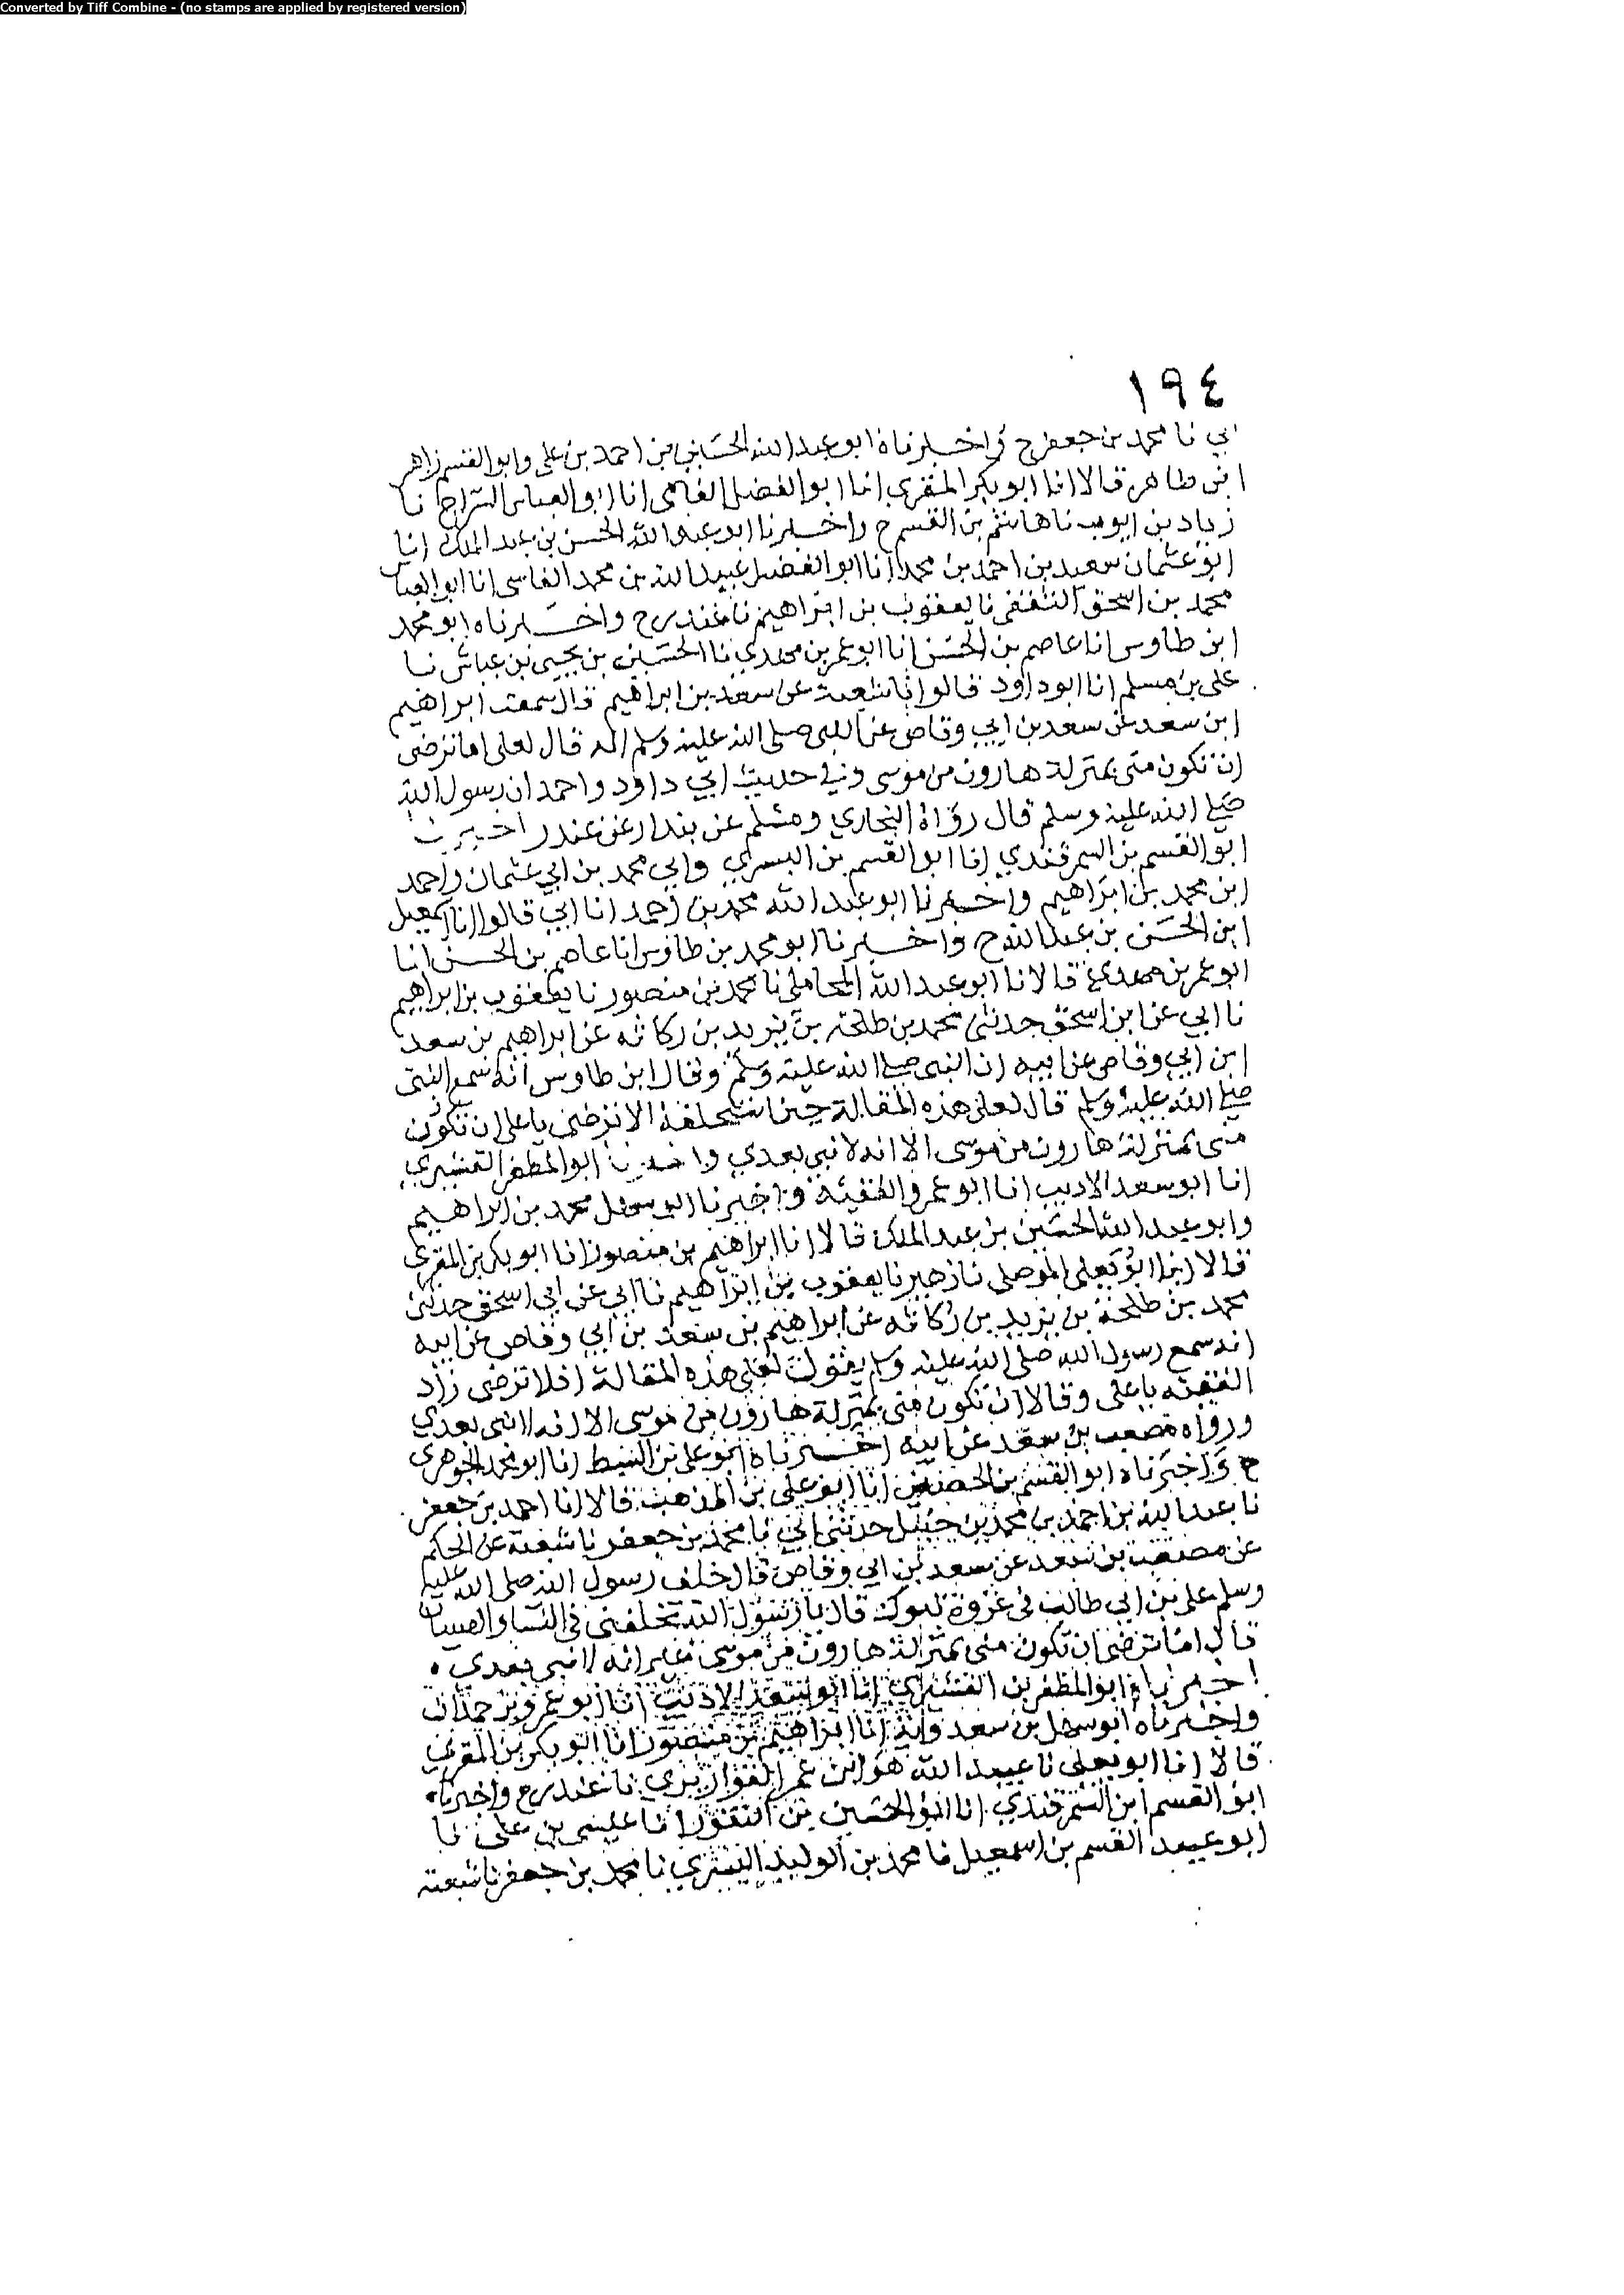 Converted by Tiff Combine - (no stamps are applied by registered version)
١٩٤
ابي نا محمد بن جعفر ح واخبرناه ابو عبد الله الحسين بن احمد بن علي وابو القسم زاهر
ابن طاهر قالا انا ابو بكر المقري انا ابو الفضل الفامي انا ابو العباس السراج نا
زياد بن ايوب نا هاشم بن القسم ح واخبرنا ابو عبد الله الحسين بن عبد الملك انا
ابو عثمان سعيد بن احمد بن محمد انا ابو الفضل عبيد الله بن محمد الفامي انا ابو العباس
محمد بن اسحق الثقفي نا يعقوب بن ابراهيم نا غندر ح واخبرناه ابو محمد
ابن طاوس انا عاصم بن الحسن انا ابو عمر بن مهدي نا الحسين بن يحيى بن عياش نا
علي بن مسلم انا ابو داود قالوا نا شعبة عن سعد بن ابراهيم قال سمعت ابراهيم
ابن سعد عن سعد بن ابي وقاص عن النبي صلى الله عليه وسلم انه قال لعلي اما ترضى
ان تكون مني بمنزلة هارون من موسى وفي حديث ابي داود واحمد ان رسول الله
صلى الله عليه وسلم قال رواه البخاري ومسلم عن بندار عن غندر اخبرنا
ابو القسم بن السمرقندي انا ابو القسم بن البسري وابي محمد بن ابي عثمان واحمد
ابن محمد بن ابراهيم واخبرنا ابو عبد الله محمد بن احمد انا ابي قالوا انا اسمعيل
ابن الحسن بن عبد الله ح واخبرنا ابو محمد بن طاوس انا عاصم بن الحسن انا
ابو عمر بن مهدي قالا نا ابو عبد الله المحاملي نا محمد بن منصور نا يعقوب بن ابراهيم
نا ابي عن ابن اسحق حدثني محمد بن طلحة بن يزيد بن ركانه عن ابراهيم بن سعد
ابن ابي وقاص عن ابيه ان النبي صلى الله عليه وسلم وقال ابن طاوس انه سمع النبي
صلى الله عليه وسلم قال لعلي هذه المقالة حين استخلفه الا ترضى يا علي ان تكون
مني بمنزلة هارون من موسى الا انه لا نبي بعدي واخبرنا ابو المظفر القشيري
انا ابو سعد الاديب انا ابو عمرو الفقيه واخبرنا ابو سهل محمد بن ابراهيم
وابو عبد الله الحسين بن عبد الملك قالا انا ابراهيم بن منصور انا ابو بكر بن المقري
قالا انا ابو يعلى الموصلي نا زهير نا يعقوب بن ابراهيم نا ابي عن ابي اسحق حدثني
محمد بن طلحة بن يزيد بن ركانه عن ابراهيم بن سعد بن ابي وقاص عن ابيه
انه سمع رسول الله صلى الله عليه وسلم يقول لعلي هذه المقالة افلا ترضى زاد
الفقيه يا علي وقالا ان تكون مني بمنزلة هارون من موسى الا انه لا نبي بعدي
ورواه مصعب بن سعد عن ابيه اخبرناه ابو علي بن السبط انا ابو محمد الجوهري
ح واخبرناه ابو القسم بن الحصين انا ابو علي بن المذهب قالا انا احمد بن جعفر
نا عبد الله بن احمد بن محمد بن حنبل حدثني ابي نا محمد بن جعفر نا شعبة عن الحكم
عن مصعب بن سعد عن سعد بن ابي وقاص قال خلف رسول الله صلى الله عليه
وسلم علي بن ابي طالب في غزوة تبوك قال يا رسول الله تخلفني في النسا والصبيان
قال اما ترضى ان تكون مني بمنزلة هارون من موسى غير انه لا نبي بعدي
اخبرناه ابو المظفر بن القشيري انا ابو سعد الاديب انا ابو عمرو بن حمدان
واخبرناه ابو سهل بن سعدويه انا ابراهيم بن منصور انا ابو بكر بن المقري
قالا انا ابو يعلى نا عبيد الله هو ابن عمر القواريري نا غندر ح واخبرناه
ابو القسم ابن السمرقندي انا ابو الحسين بن النقور انا عيسى بن علي نا
ابو عبيد القسم بن اسمعيل نا محمد بن الوليد البسري نا محمد بن جعفر نا شعبة